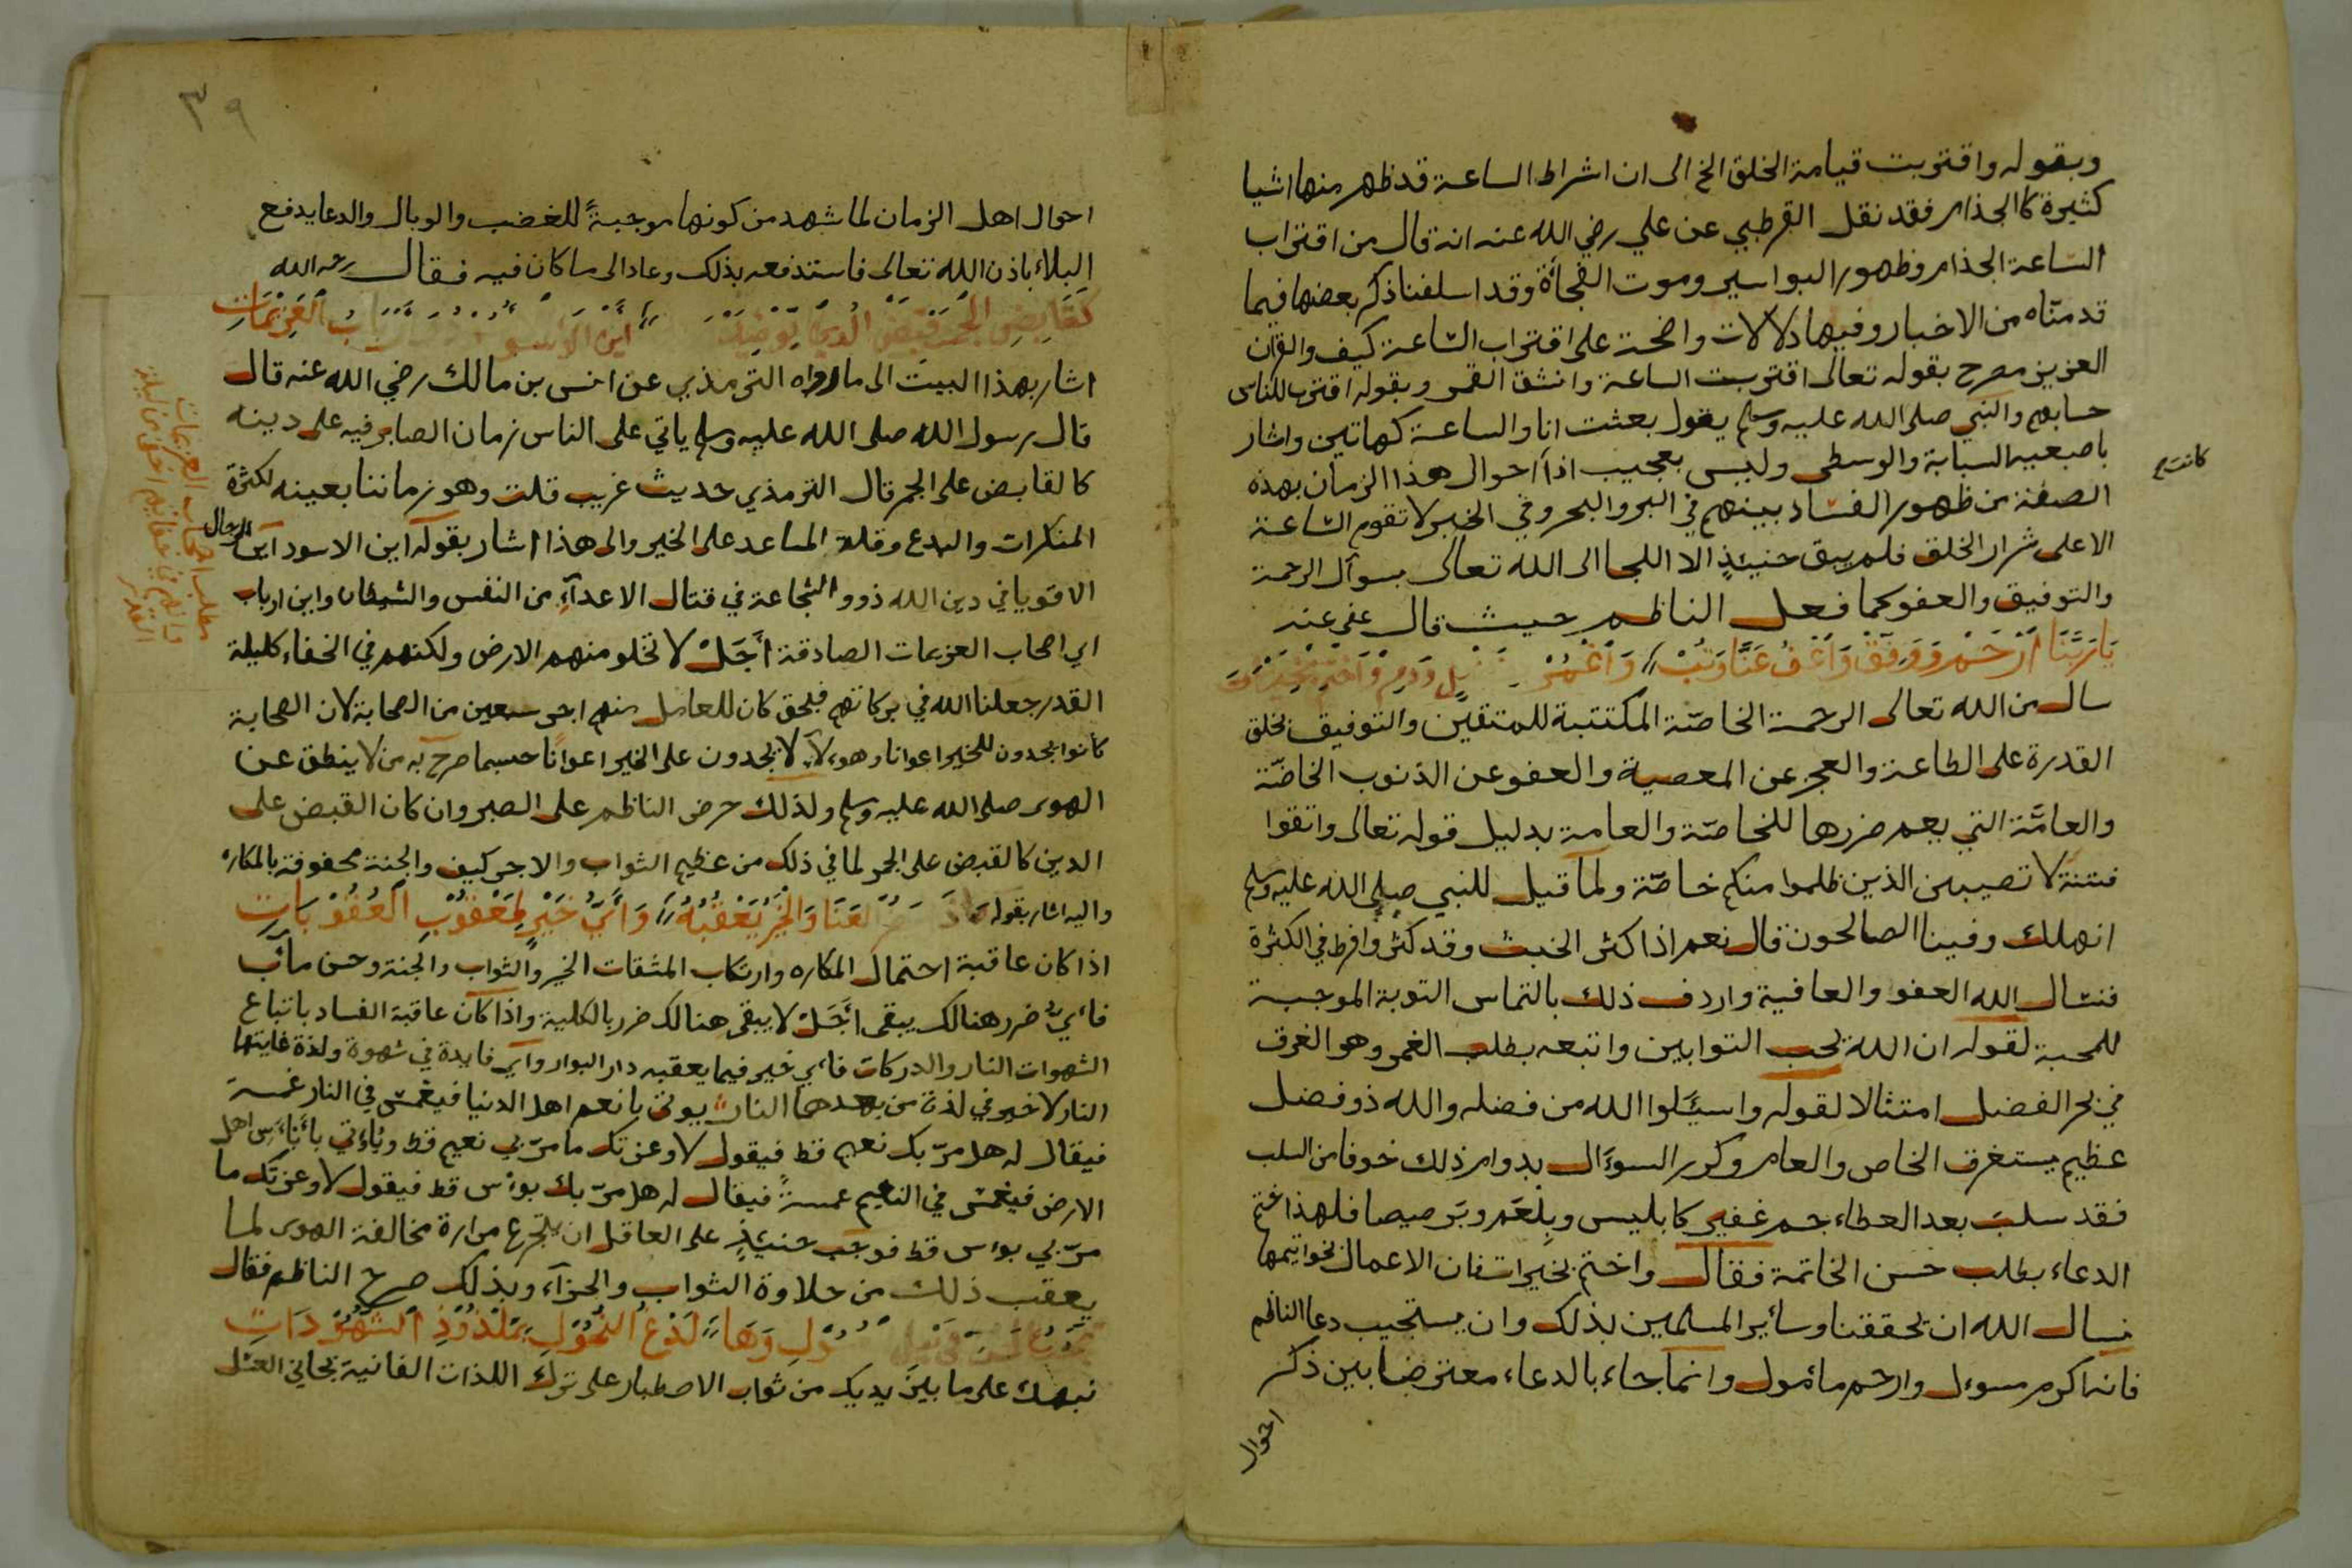 وبقوله واقتربت قيامة الخلق الخ الى ان اشراط الساعة قد ظهر منها اشيا
كثيرة كالجذام فقد نقل القرطبي عن علي رضي الله عنه انه قال من اقتراب
الساعة الجذام وظهور البواسير وموت الفجأة وقد اسلفنا ذكر بعضها فيما
قدمناه من الاخبار وفيها دلالات واضحة على اقتراب الساعة كيف والقران
العزيز مصرح بقوله تعالى اقتربت الساعة وانشق القمر وبقوله اقترب للناس
حسابهم والنبي صلى الله عليه وسلم يقول بعثت انا والساعة كهاتين واشار
باصبعيه السبابة والوسطى وليس بعجيب اذاً احوال هذا الزمان بهذه
الصفة من ظهور الفساد بينهم في البر والبحر وفي الخبر لا تقوم الساعة
الا على شرار الخلق فلم يبق حنيئذٍ الا اللجا الى الله تعالى بسوآل الرحمة
والتوفيق والعفو كما فعل الناظم حيث قال عفى عنه
يَا رَبَّنَا اَرْحَمْ وَوَفِّقْ وَاعْفُ عَنَّا وَتُبْ وَاغْمُرْ
سال من الله تعالى الرحمة الخاصّة المكتتبة للمتقين والتوفيق بخلق
القدرة على الطاعة والعجز عن المعصية والعفو عن الذنوب الخاصّة
والعامَّة التي يعم ضررها للخاصّة والعامة بدليل قوله تعالى واتقوا
فتنة لا تصيبن الذين ظلموا منكم خاصّة ولما قيل للنبي صلى الله عليه وسلم
انهلك وفينا الصالحون قال نعم اذا كثر الخبث وقد كثر وافرط في الكثرة
فنسال الله العفو والعافية واردف ذلك بالتماس التوبة الموجبة
للمحبة لقوله ان الله يحب التوابين واتبعه بطلب الغمر وهو الغرق
في بحر الفضل امتثالا لقوله واسئلوا الله من فضله والله ذو فضل
عظيم يستغرق الخاص والعام وكرر السوءال بدوام ذلك خوفا من السلب
فقد سلب بعد العطاء جم غفير كابليس وبلعم وبرصيصا فلهذا ختم
الدعاء بطلب حسن الخاتمة فقال واختم بخيرات فان الاعمال بخواتيمها
نسال الله ان يحققنا وسائر المسلمين بذلك وان يستجيب دعا الناظم
فانه اكرم مسوءل وارحم مامول وانما جاء بالدعاء معترضا بين ذكر
احوال
٣٩
احوال اهل الزمان لما شهد من كونها موجبةً للغضب والوبال والدعا يدفع
البلاء باذن الله تعالى فاستدفعه بذلك وعاد الى ما كان فيه فقال رحمه الله
كقَابِضِ الجَمر قبض الدين اَين الاسو ارباب العَزِيمَاتِ
اشار بهذا البيت الى ما رواه الترمذي عن انس بن مالك رضي الله عنه قال
قال رسول الله صلى الله عليه وسلم ياتي على الناس زمان الصابر فيه على دينه
كالقابض على الجمر قال الترمذي حديث غريب قلت وهو زماننا بعينه لكثرة
المنكرات والبدع وقلة المساعد على الخير والى هذا اشار بقوله اين الاسود اين الرجال
الاقويا في دين الله ذوو الشجاعة في قتال الاعدآءِ من النفس والشيطان واين ارباب
اي اصحاب العزيمات الصادقة أجَلْ لا تخلو منهم الارض ولكنهم في الخفاء كليلة
القدر جعلنا الله في بركاتهم فبحق كان للعامل منهم اجر سبعين من الصحابة لان الصحابة
كانوا يجدون للخير اعوانا وهوءلاء لا يجدون على الخير اعوانا حسبما صرح به من لا ينطق عن
الهوى صلى الله عليه وسلم ولذلك حرض الناظم على الصبر وان كان القبض على
الدين كالقبض على الجمر لما في ذلك من عظيم الثواب والاجر كيف والجنة محفوفة بالمكاره
واليه اشار بقوله العَنَا وَالخَيْرُ يَعْقُبُهُ وَاَيُّ خَيْرٍ لِمَعْقُوْبِ الْعُقُوْبَاتِ
اذا كان عاقبة احتمال المكاره وارتكاب المشقات الخير والثواب والجنة وحسن مآب
فاي ضرر هنالك يبقى أجَلْ لا يبقى هنالك ضرر بالكلية واذا كان عاقبة الفساد باتباع
الشهوات النار والدركات فاي خير فيما يعقبه دار البوار واي فايدة في شهوة ولذة غايتها
النار لا خير في لذة من بعدها النار يوتى بانعم اهل الدنيا فيغمس في النار غمسة
فيقال له هل مرّ بك نعيم قط فيقول لا وعزتك ما مرّ بي نعيم قط ويؤتى باباءس اهل
الارض فيغمس في النعيم غمسةً فيقال له هل مرّ بك بوءس قط فيقول لا وعزتك ما
مرّ بي بوءس قط فوجب حنيئذٍ على العاقل ان يتجرع مرارة مخالفة الهوى لما
يعقب ذلك من حلاوة الثواب والجزآء وبذلك صرح الناظم فقال
لَدْغُ النُّحُوْلِ بمَلْذُوْذِ الشُّهُوْدَاتِ
نبهك على ما بين يديك من ثواب الاصطبار على ترك اللذات الفانية بجاني العسل
مطلب اصحاب العزيمات